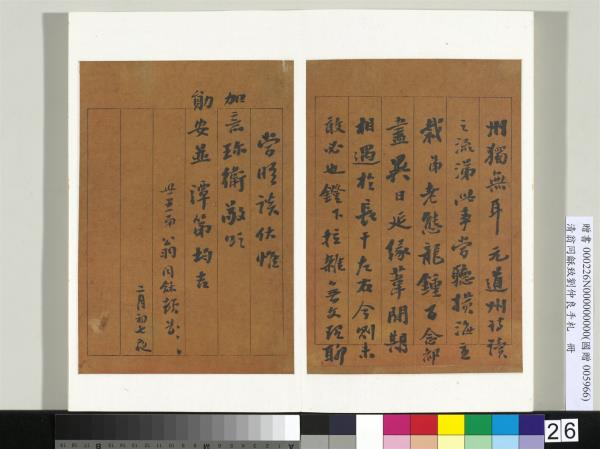 州獨無耳元道州詩讀
之流涕此事當聽摸海上
哉弟老態龍鍾百念都
盡異日延緣葦間或
相遇於長干左右今則未
敢必也鐙下拉雜無文理聊
當晤談伏惟
加意珍衛敬頌
勛安並 潭第均吉
世愚弟翁同龢頓首
二月初七夜
贈書000226N000000000(國贈 005966)
清翁同龢致劉仲良手札 冊
26